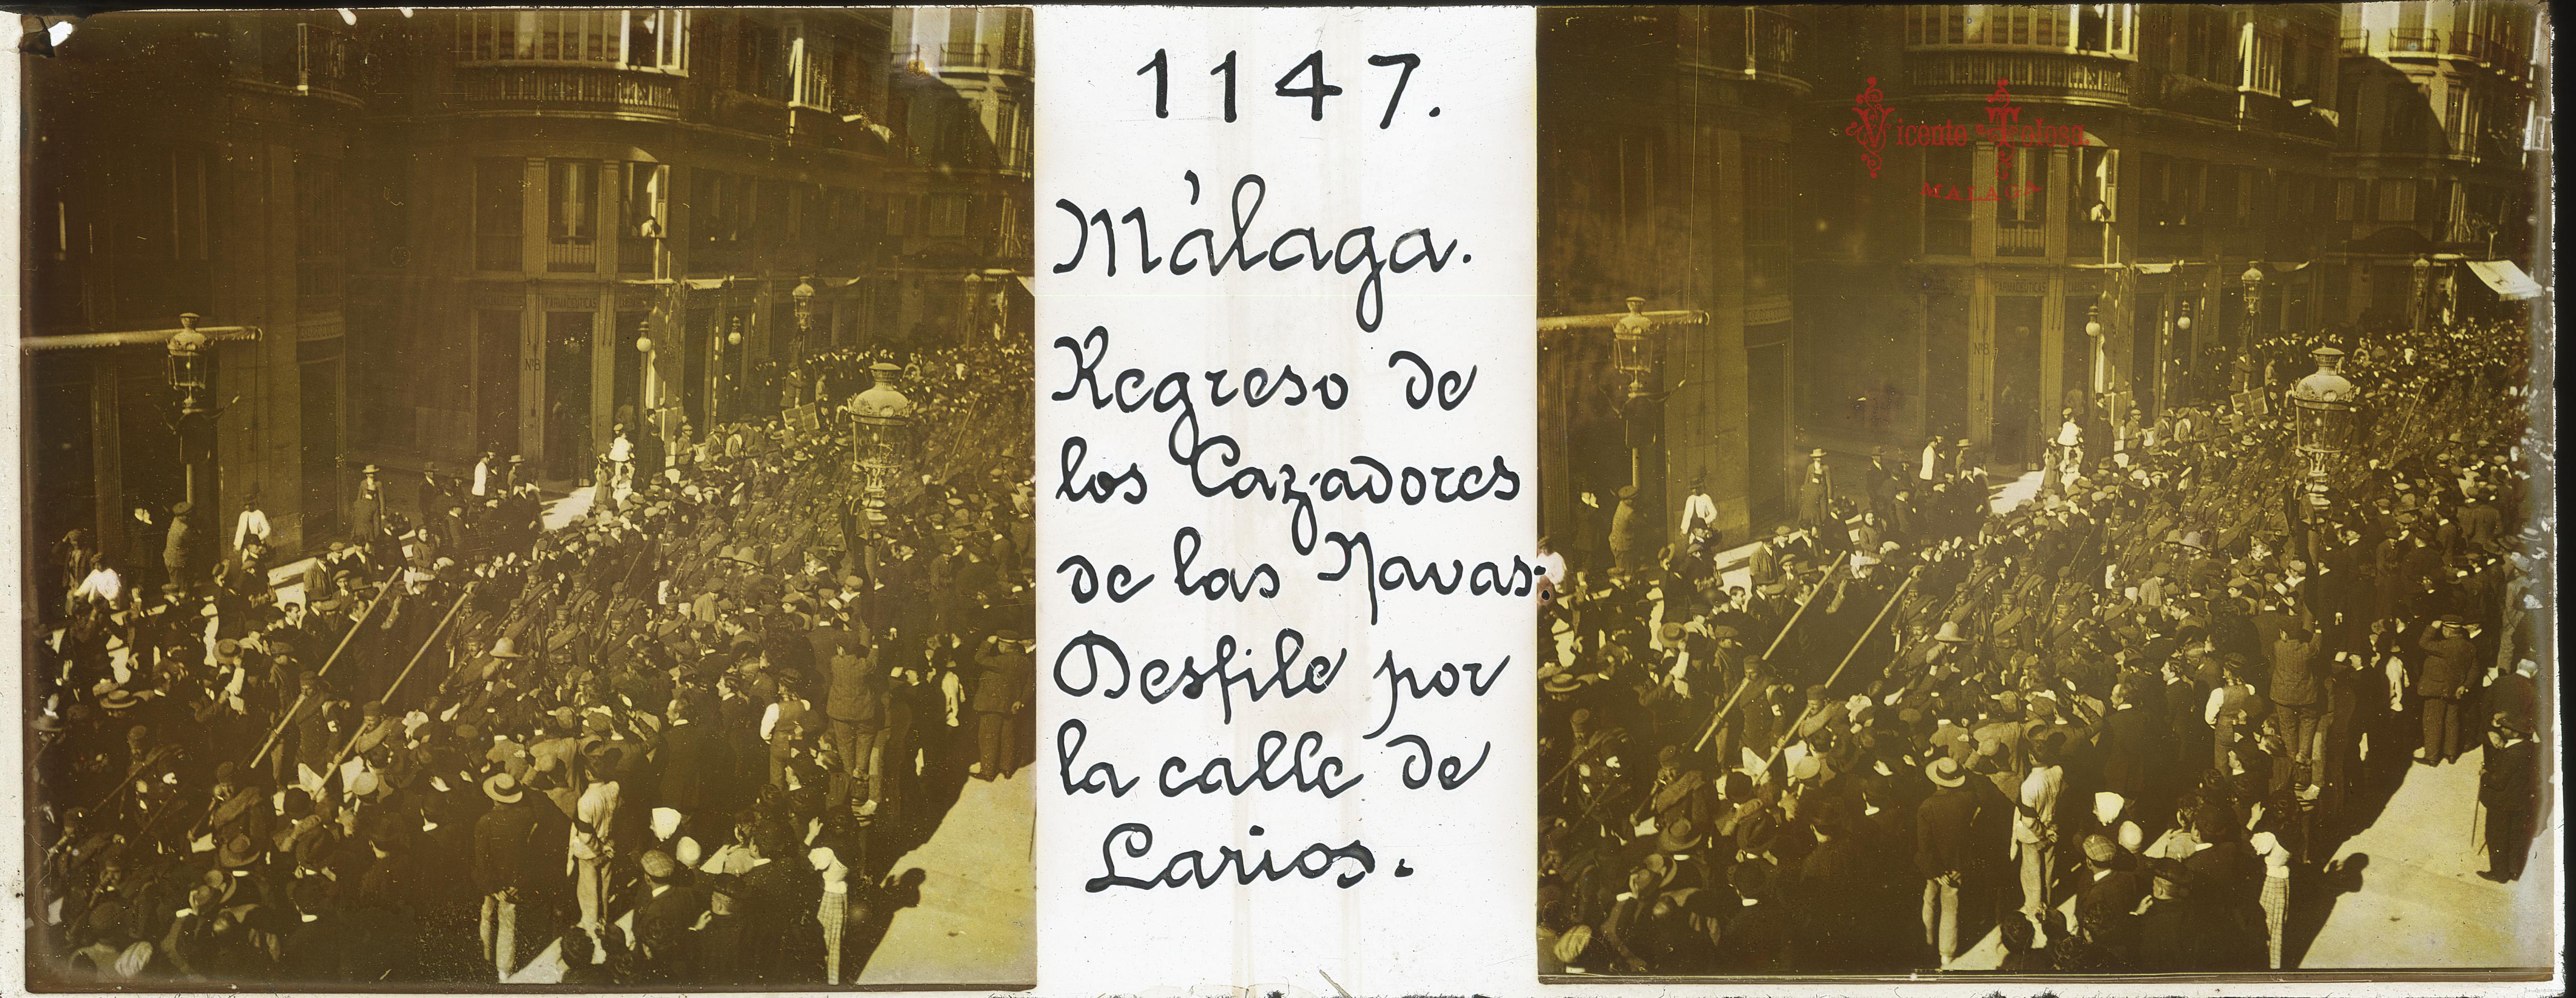 1147.
Málaga.
Regreso de
los Cazadores
de las Navas.
Desfile por
la calle de
Larios.
FARMACEUTICAS
Nº8
Vicente Tolosa.
MALAGA
FARMACEUTICAS
Nº8